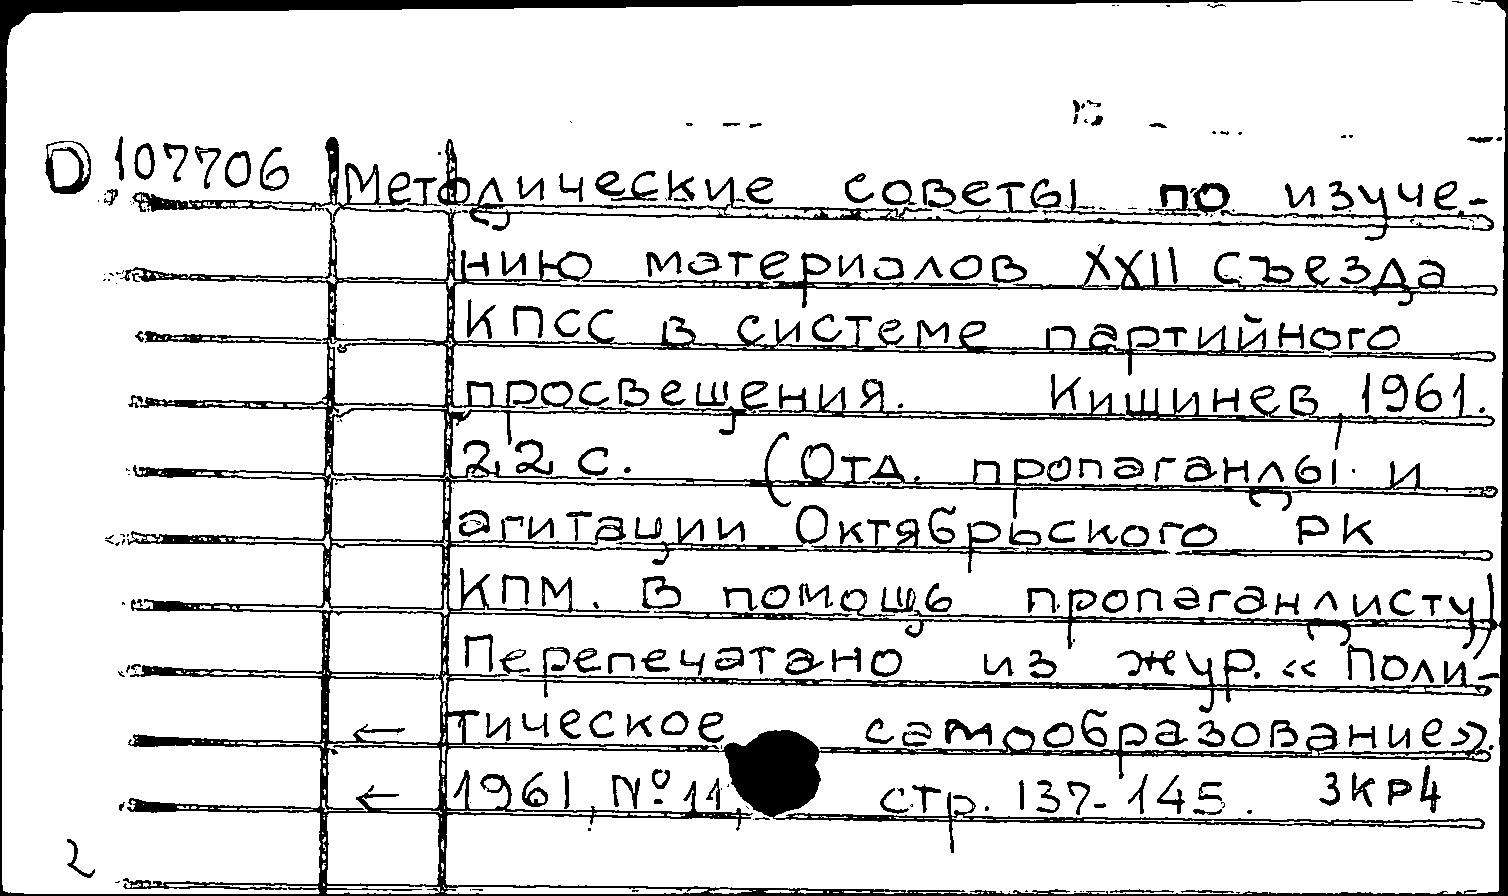 D 107706 Методические советы по изуче-
нию материалов XXII съезда
КПСС в системе партийного
просвещения. Кишинев, 1961.
22 с. (Отд. пропаганды и
агитации Октябрьского РК
КПМ. В помощь пропагандисту)
Перепечатано из жур. «Поли-
← тическое самообразование».
← 1961, № 11, стр. 137-145. 3КР4
2